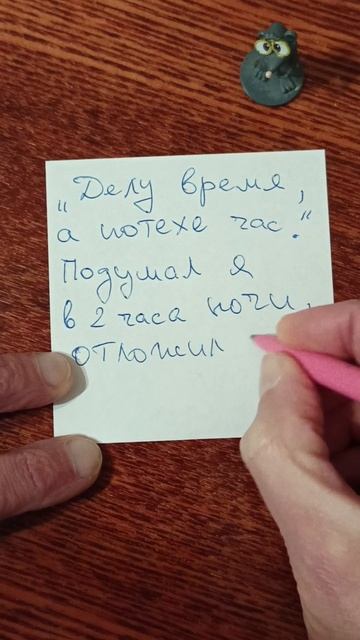 „Делу время,
а потехе час."
Подумал я
в 2 часа ночи,
отложил